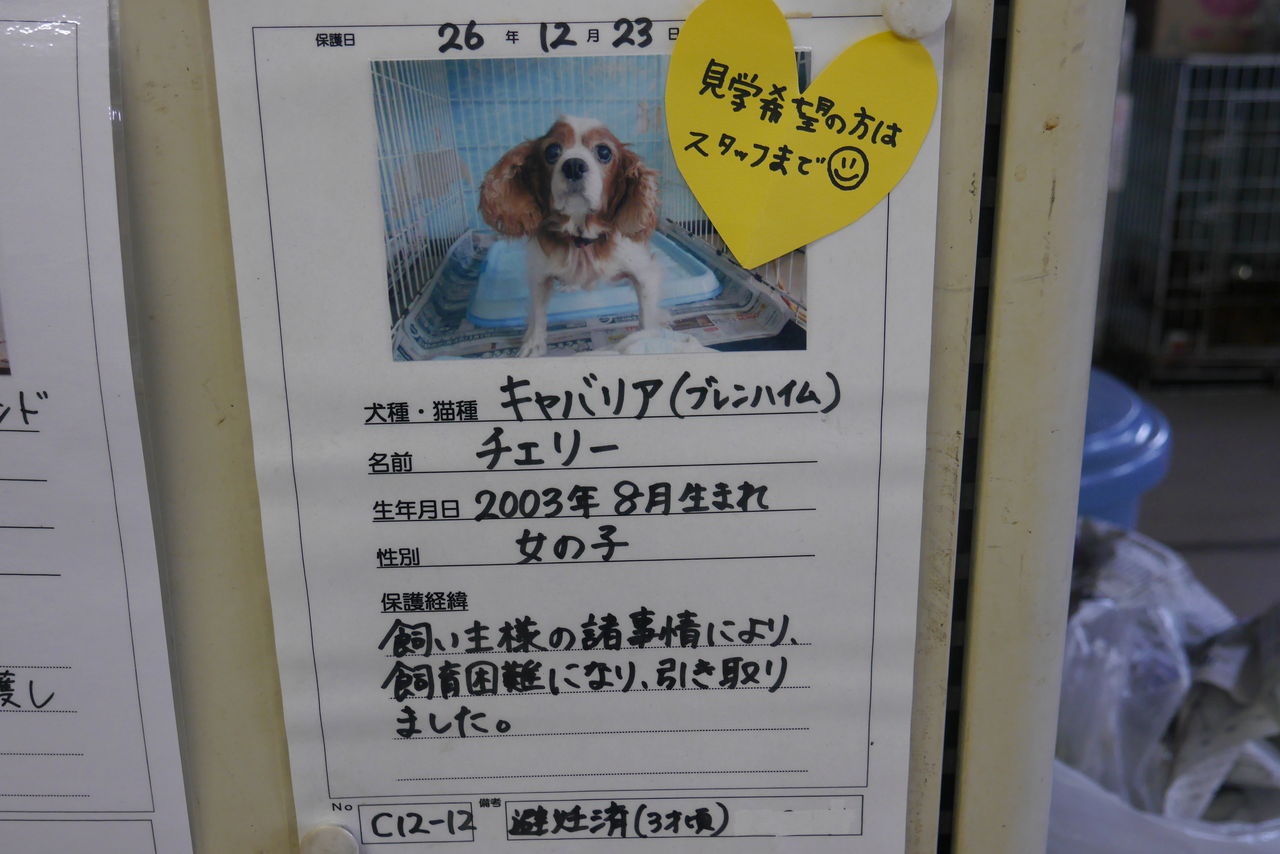 保護日 26 年 12 月 23 日
見学希望の方は
スタッフまで
犬種・猫種 キャバリア(ブレンハイム)
名前 チェリー
生年月日 2003年 8月生まれ
性別 女の子
保護経緯
飼い主様の諸事情により、
飼育困難になり、引き取り
ました。
No C12-12 備考 避妊済(3才頃)
ンド
護し